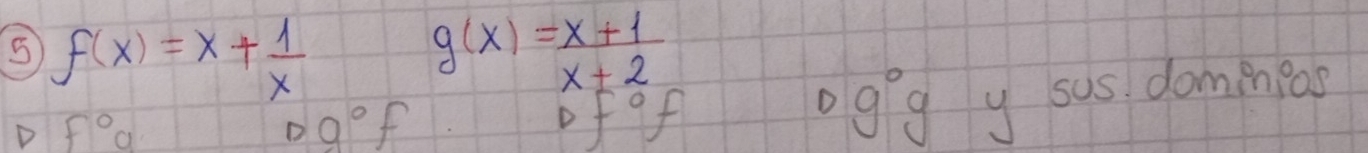 ⑤ f(x) = x + 1/x g(x) = x+1/x+2
▷ f°g ▷ g°f ▷ f°f ▷ g°g y sus. dominios